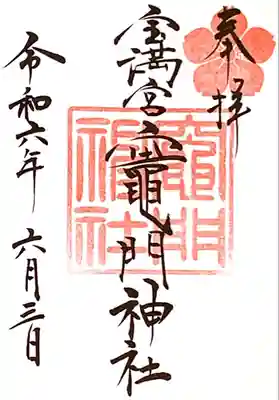 奉拝
宝満宮竈門神社
竈門神社
令和六年 六月三日